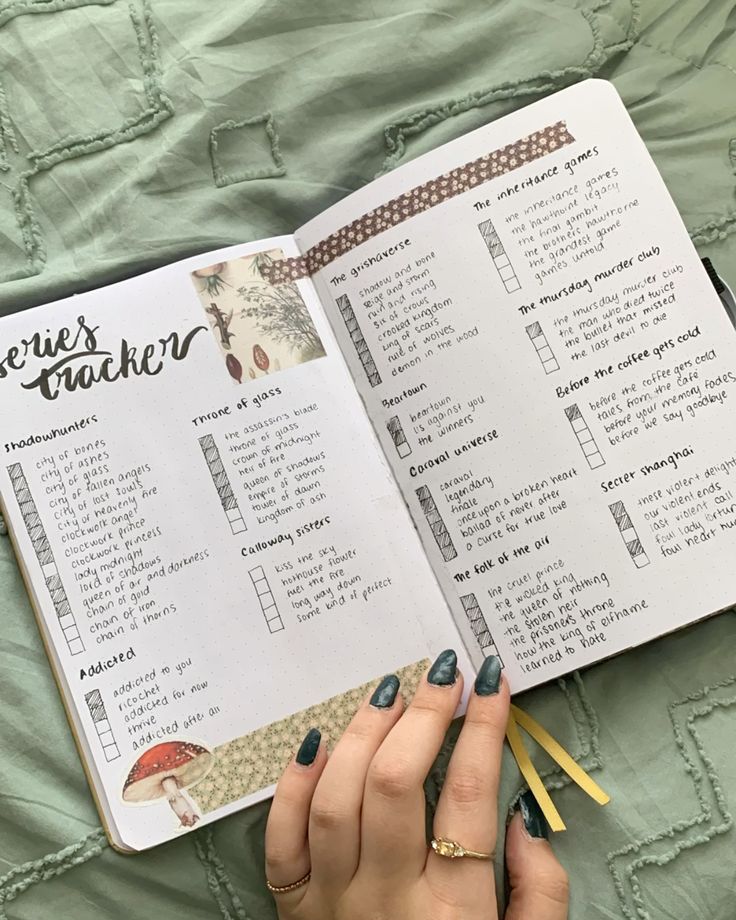 series
tracker
Shadowhunters
city of bones
city of ashes
city of glass
city of fallen angels
city of lost souls
city of heavenly fire
clockwork angel
clockwork prince
clockwork princess
lady midnight
lord of shadows
queen of air and darkness
chain of gold
chain of iron
chain of thorns
Addicted
addicted to you
ricochet
addicted for now
thrive
addicted after all
Throne of glass
the assassin's blade
throne of glass
crown of midnight
heir of fire
queen of shadows
empire of storms
tower of dawn
kingdom of ash
Calloway sisters
kiss the sky
hothouse flower
fuel the fire
long way down
some kind of perfect
The grishaverse
shadow and bone
seige and storm
ruin and rising
six of crows
crooked kingdom
king of scars
rule of wolves
demon in the wood
Beartown
beartown
us against you
the winners
Caraval universe
caraval
legendary
finale
once upon a broken heart
ballad of never after
a curse for true love
The folk of the air
the cruel prince
the wicked king
the queen of nothing
the stolen heir
the prisoners throne
how the king of elfhame
learned to hate
The inheritance games
the inheritance games
the hawthorne legacy
the final gambit
the brothers hawthorne
the grandest game
games untold
The thursday murder club
the thursday murder club
the man who died twice
the bullet that missed
the last devil to die
Before the coffee gets cold
before the coffee gets cold
tales from the cafe
before your memory fades
before we say goodbye
Secret shanghai
these violent delights
our violent ends
last violent call
foul lady fortune
foul heart